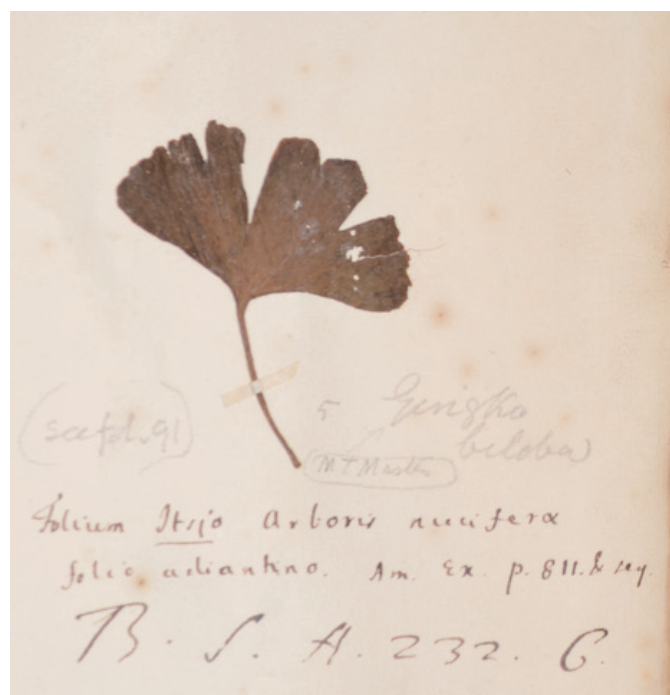 (see fol. 91)
5 Gingko
biloba
M T Masters
Folium Itsjo Arboris nuciferæ
folio adiantino. Am. Ex. p. 811. & seq.
B. S. A. 232. C.